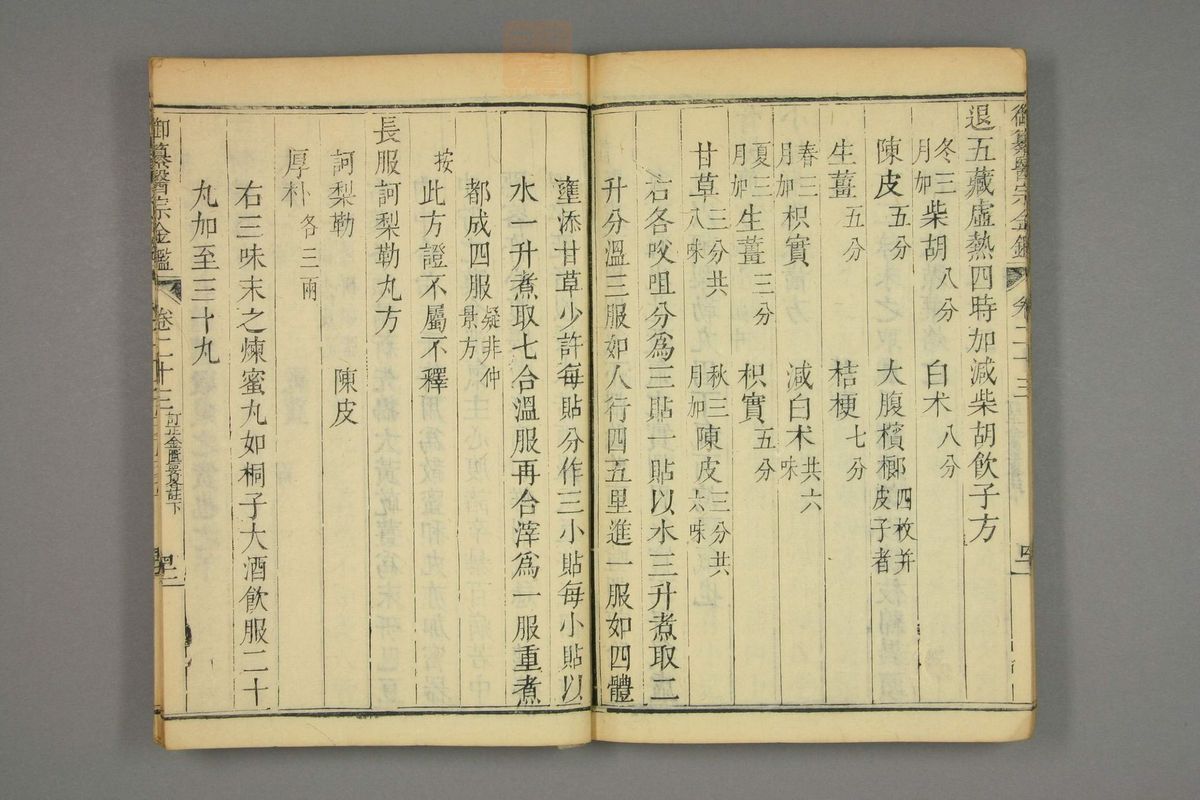 御纂醫宗金鑑 卷二十三
退五藏虛熱四時加減柴胡飲子方
冬三月加柴胡八分 白朮八分
陳皮五分 大腹檳榔四枚并皮子者
生薑五分 桔梗七分
春三月加枳實 減白朮共六味
夏三月加生薑三分 枳實五分
甘草三分共八味 秋三月加陳皮三分共六味
右各㕮咀分為三貼一貼以水三升煮取二
升分溫三服如人行四五里進一服如四體
壅添甘草少許每貼分作三小貼每小貼以
水一升煮取七合溫服再合滓為一服重煮
都成四服疑非仲景方
按此方證不屬不釋
長服訶梨勒丸方
訶梨勒 陳皮
厚朴各三兩
右三味末之煉蜜丸如桐子大酒飲服二十
丸加至三十丸
御纂醫宗金鑑 卷二十三 訂正金匱要畧註下